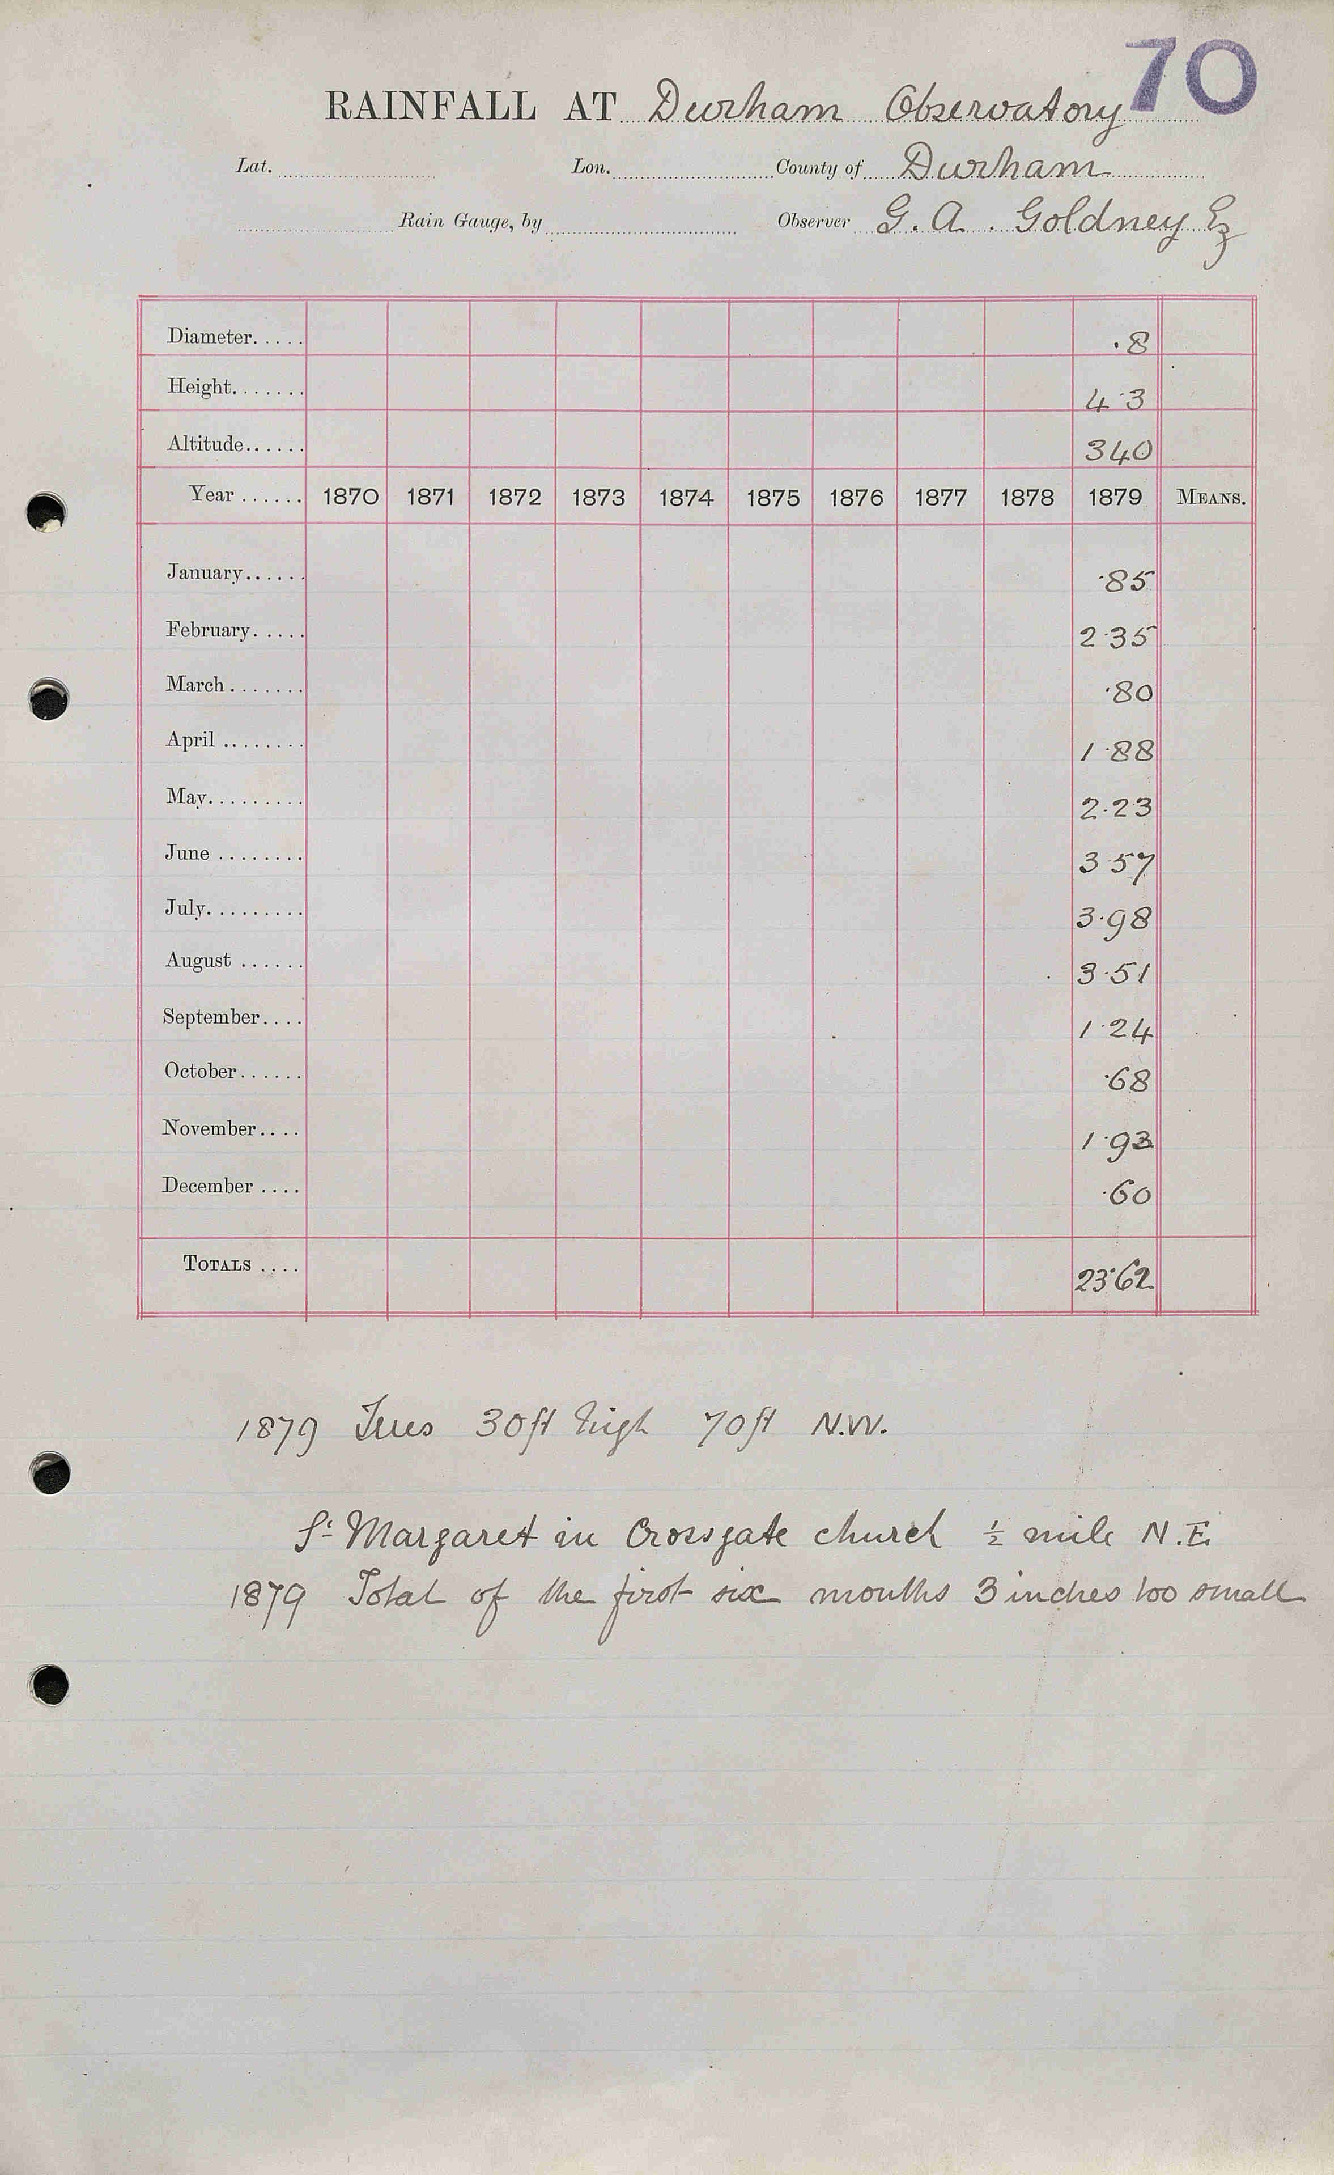 70
RAINFALL AT Durham Observatory
Lat. Lon. County of Durham
Rain Gauge, by Observer G. A. Goldney Eq
Diameter..... ·8
Height....... 4·3
Altitude...... 340
Year ...... 1870 1871 1872 1873 1874 1875 1876 1877 1878 1879 MEANS.
January...... ·85
February..... 2·35
March ....... ·80
April ........ 1·88
May......... 2·23
June ........ 3·57
July......... 3·98
August ...... 3·51
September.... 1·24
October...... ·68
November.... 1·93
December .... ·60
TOTALS .... 23·62
1879 Trees 30ft high 70ft N.W.
St Margaret in Crossgate church ½ mile N.E.
1879 Total of the first six months 3 inches too small